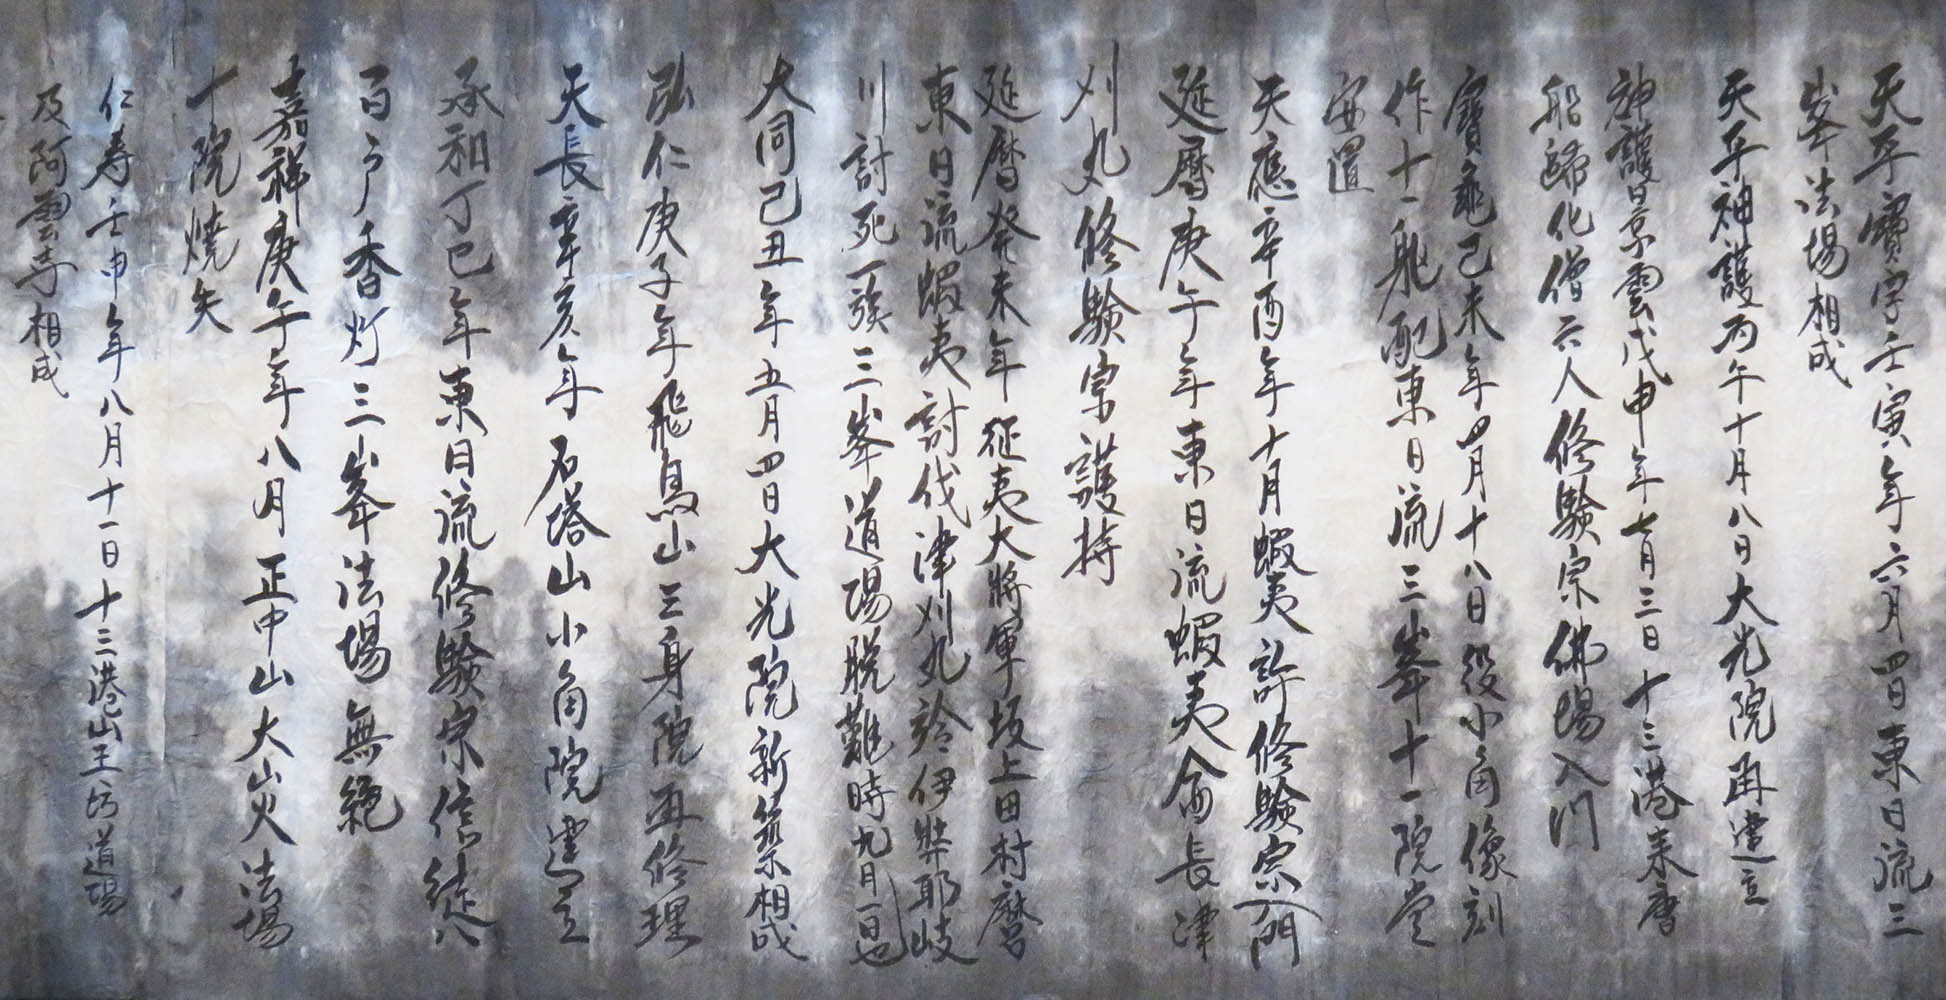 天平寳字壬寅年六月四日東日流三
峯法場相成
天平神護丙午十月八日大光院再建立
神護景雲戊申年七月三日十三港来唐
船歸化僧六人修験宗佛場入門
寳亀己未年四月十八日役小角像刻
作十一躰配東日流三峯十一院堂
安置
天應辛酉年十月蝦夷許修験宗入門
延暦庚午年東日流蝦夷酋長津
刈丸修験宗護持
延暦癸未年征夷大將軍坂上田村麿
東日流蝦夷討伐津刈丸於伊弊耶岐
川討死一族三峯道場脱難時九月一日也
大同己丑年五月四日大光院新築相成
弘仁庚子年飛鳥山三身院再修理
天長辛亥年石塔山小角院建立
承和丁巳年東日流修験宗信徒八
百戸香灯三峯法場無絶
嘉祥庚午年八月正中山大山火法場
十院焼失
仁寿壬申年八月十一日十三港山王坊道場
及阿雲寺相成